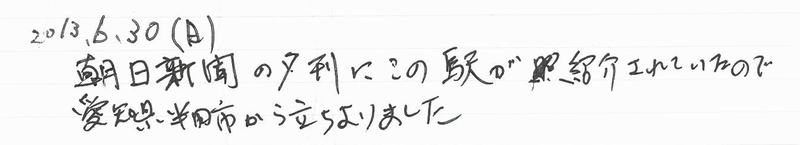 2013.6.30(日)
朝日新聞の夕刊にこの駅が紹介されていたので
愛知県半田市から立ちよりました